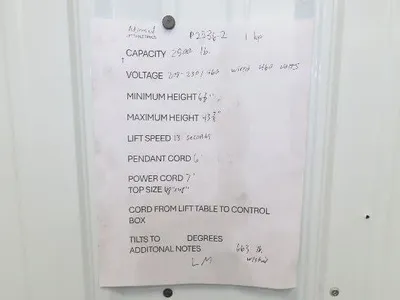 P2538-2 1 hp
CAPACITY 2500 lb.
VOLTAGE 208-230/460 wired 460 volts
MINIMUM HEIGHT
MAXIMUM HEIGHT
LIFT SPEED seconds
PENDANT CORD 6'
POWER CORD 7'
TOP SIZE
CORD FROM LIFT TABLE TO CONTROL
BOX
TILTS TO DEGREES
ADDITONAL NOTES
LM